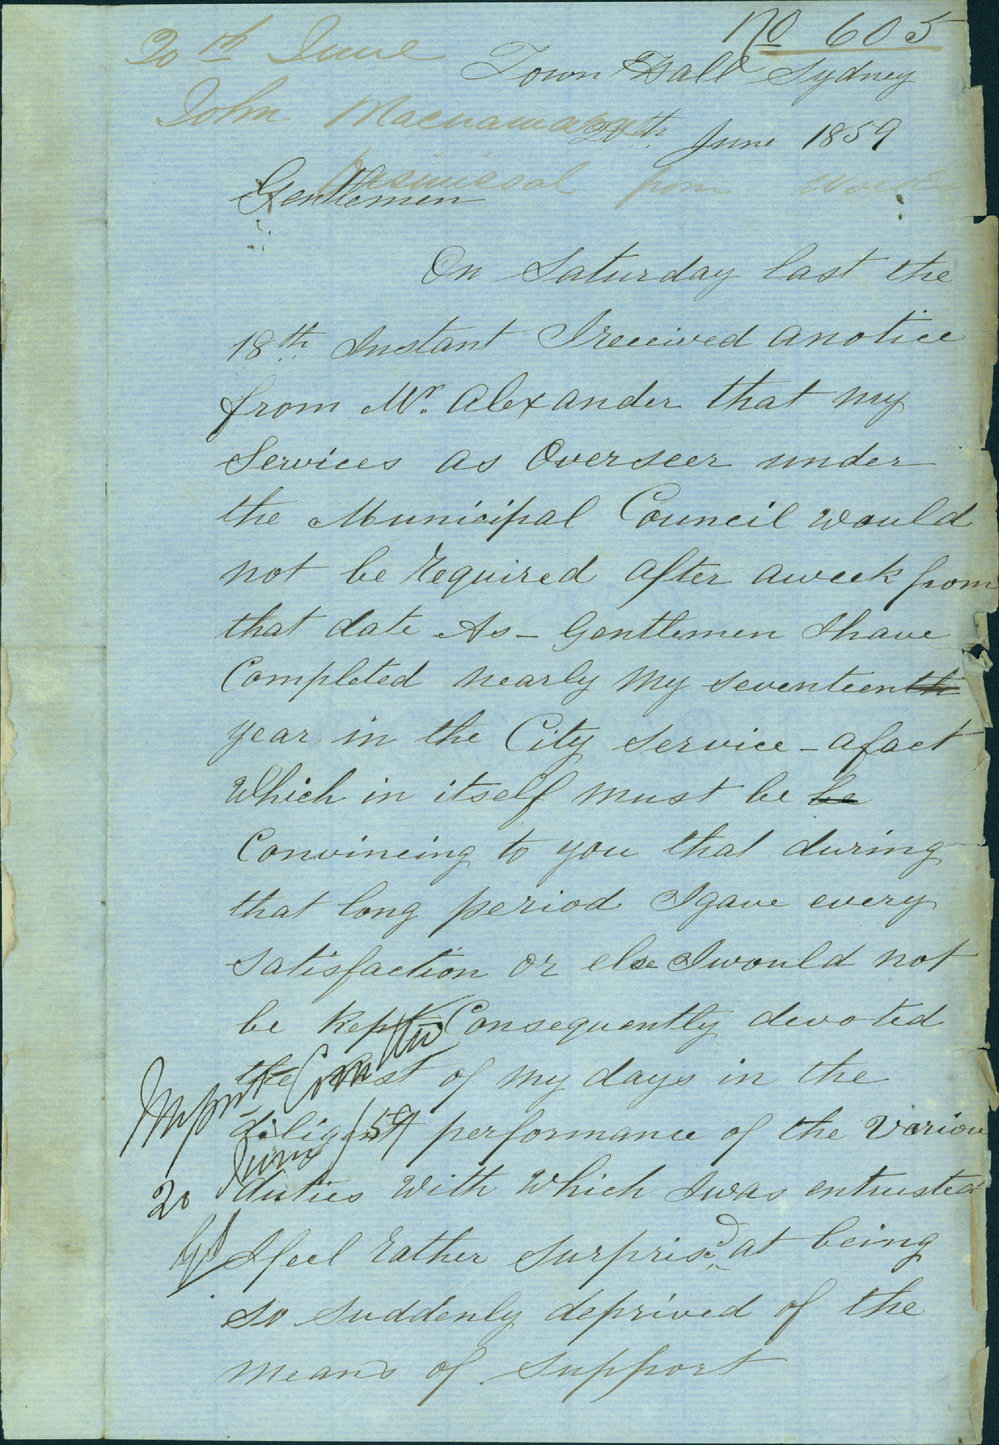 No 605
20th June
Town Hall Sydney
John Macnamara
20th June 1859
Dismissal from work
Gentlemen
On Saturday last the
18th Instant I received a notice
from Mr. Alexander that my
Services as Overseer under
the Municipal Council would
not be required after a week from
that date As - Gentlemen I have
Completed nearly my seventeenth
year in the City service - a fact
Which in itself must be be
Convincing to you that during
that long period I gave every
satisfaction or else I would not
be kept Consequently devoted
the best of my days in the
diligent performance of the Various
duties With Which I was entrusted
I feel rather surprised at being
so suddenly deprived of the
means of support
Impvt Comttee
20 June /59